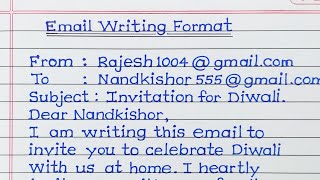 Email Writing Format
From : Rajesh1004@gmail.com
To : Nandkishor555@gmail.com
Subject : Invitation for Diwali.
Dear Nandkishor,
I am writing this email to
invite you to celebrate Diwali
with us at home. I heartly